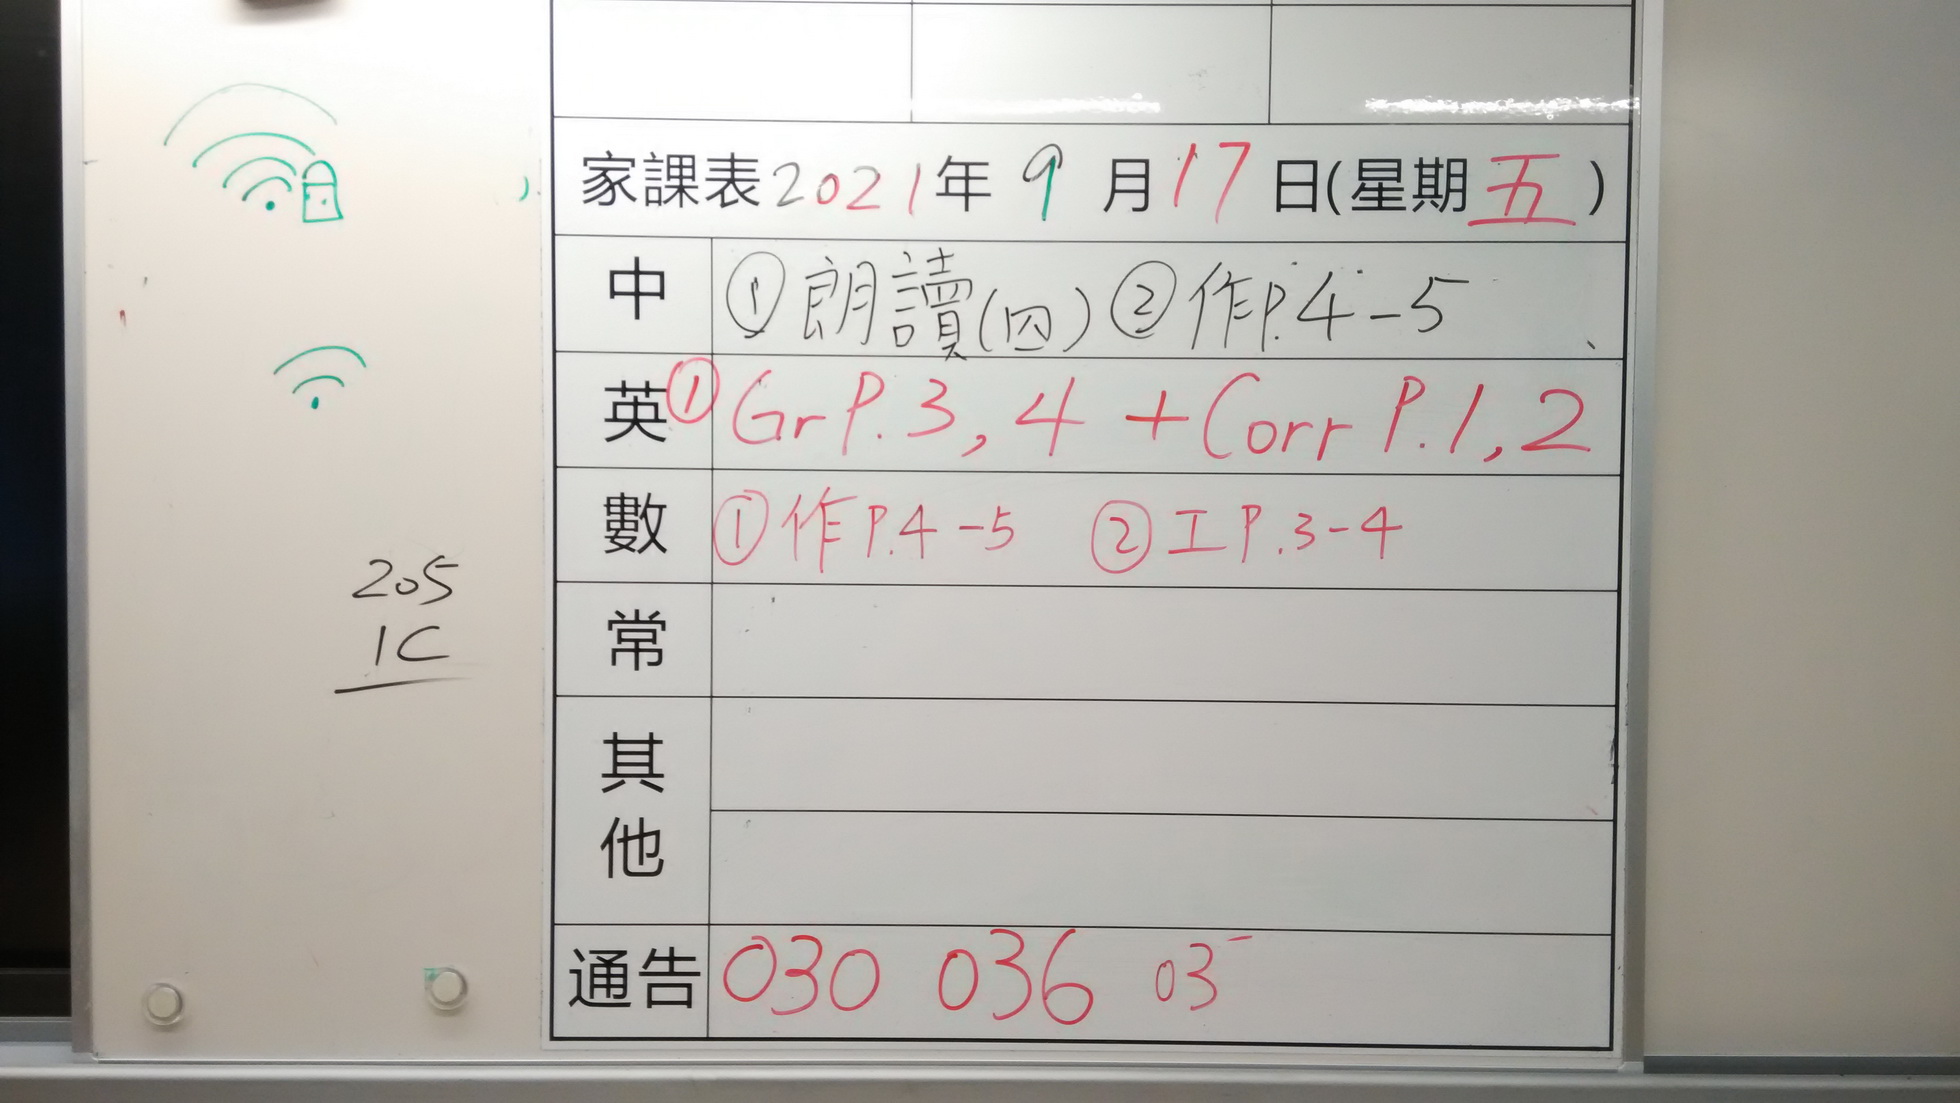 家課表2021年9月17日(星期五)
中 ①朗讀(四) ②作P.4-5
英 ①Gr P.3, 4 + Corr P.1, 2
數 ①作P.4-5 ②工P.3-4
常
其他
通告 030 036 03
205
1C